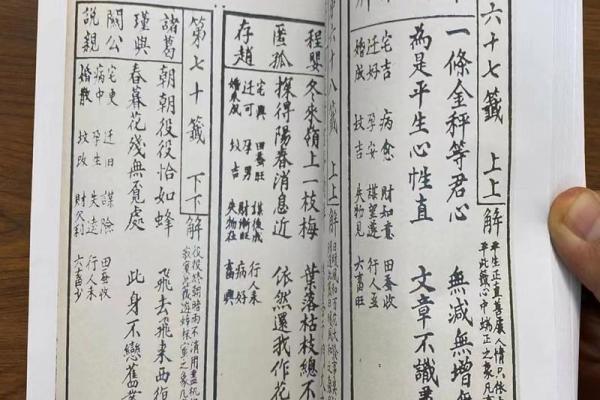 六十七籤 上上 解
平生正直善處人情只依
此籤心中端正之象凡事
一條金秤等君心 無減無增無
為是平生心性直 文章不識
宅吉 病愈 財如意 田蚕收
迁好 孕安 謀望遂 行人至
婚成 坟吉 失物見 六畜旺
六十八籤 上上 解
程嬰 冬來嶺上一枝梅 葉落枯枝總不
匿孤 探得陽春消息近 依然還我作花
存趙
宅興 田蚕旺 謀後成 行人未
迁可 孕男 財漸旺
婚未成 坟吉 失物在 畜興
第七十籤 下下 解
諸葛 朝朝役役恰如蜂 飛去飛來西復
瑾與 春暮花殘無覓處 此身不戀舊叢
關公
說親
宅更 迁旧 謀險 田蚕收
病中 孕生 失遠 行人未
婚散 坟改 財欠利 六畜少